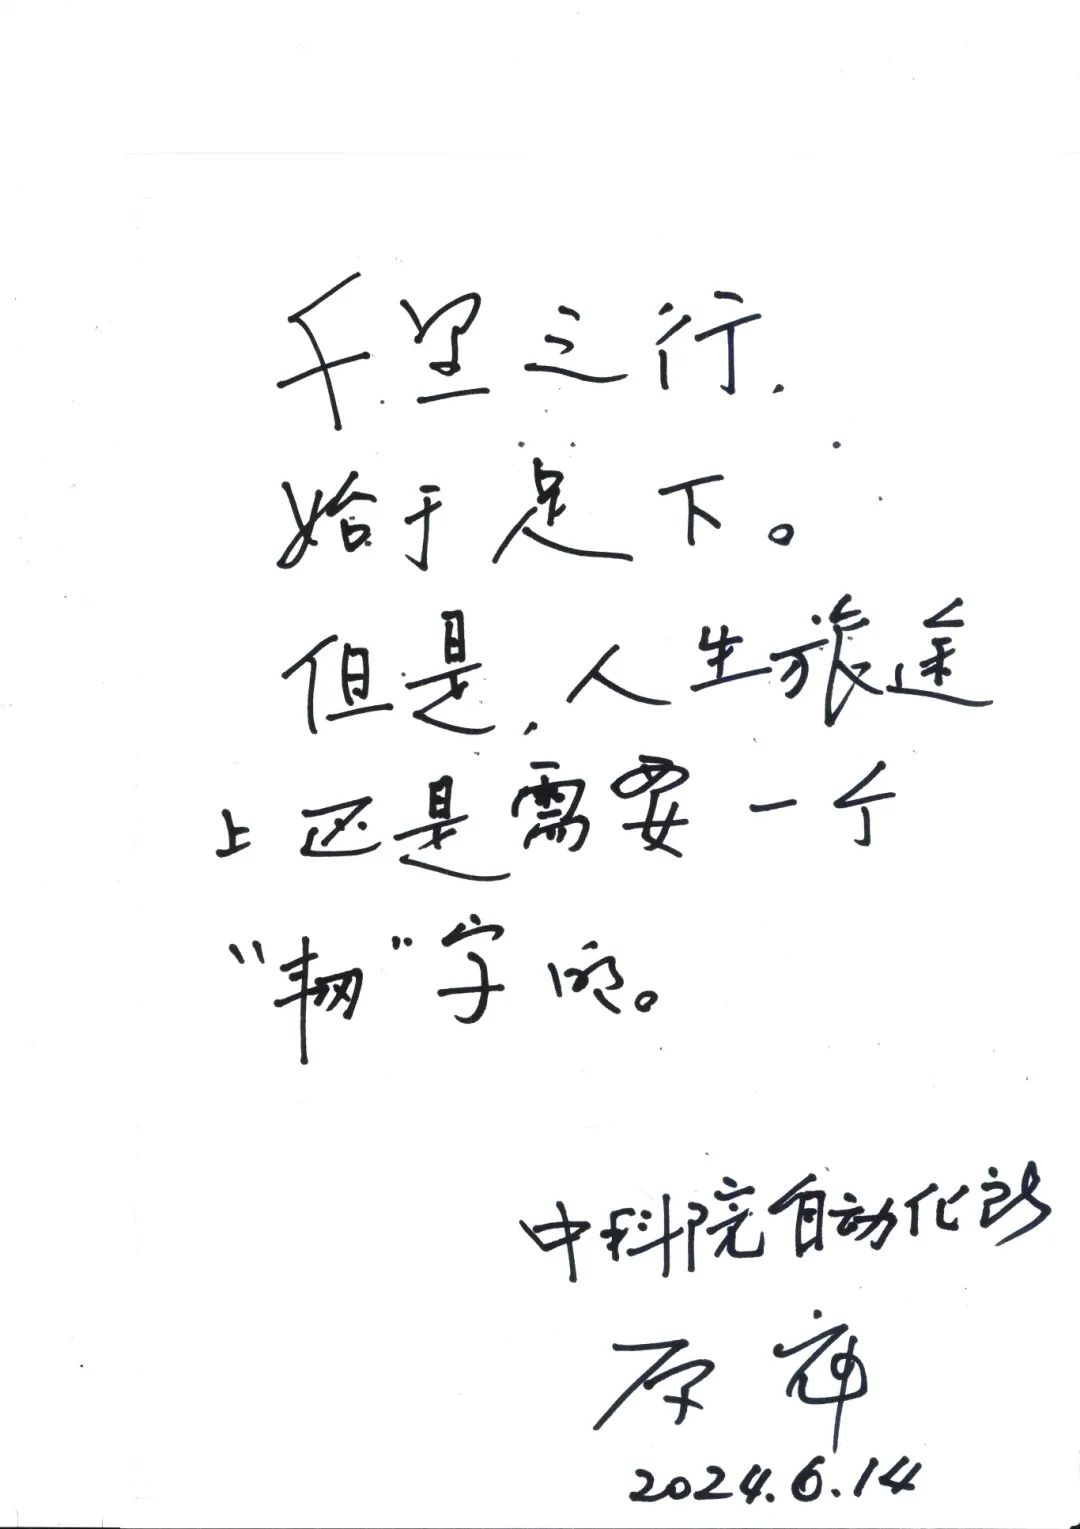 千里之行,
始于足下。
但是,人生旅途
上还是需要一个
“韧”字的。
中科院自动化所
原
2024.6.14